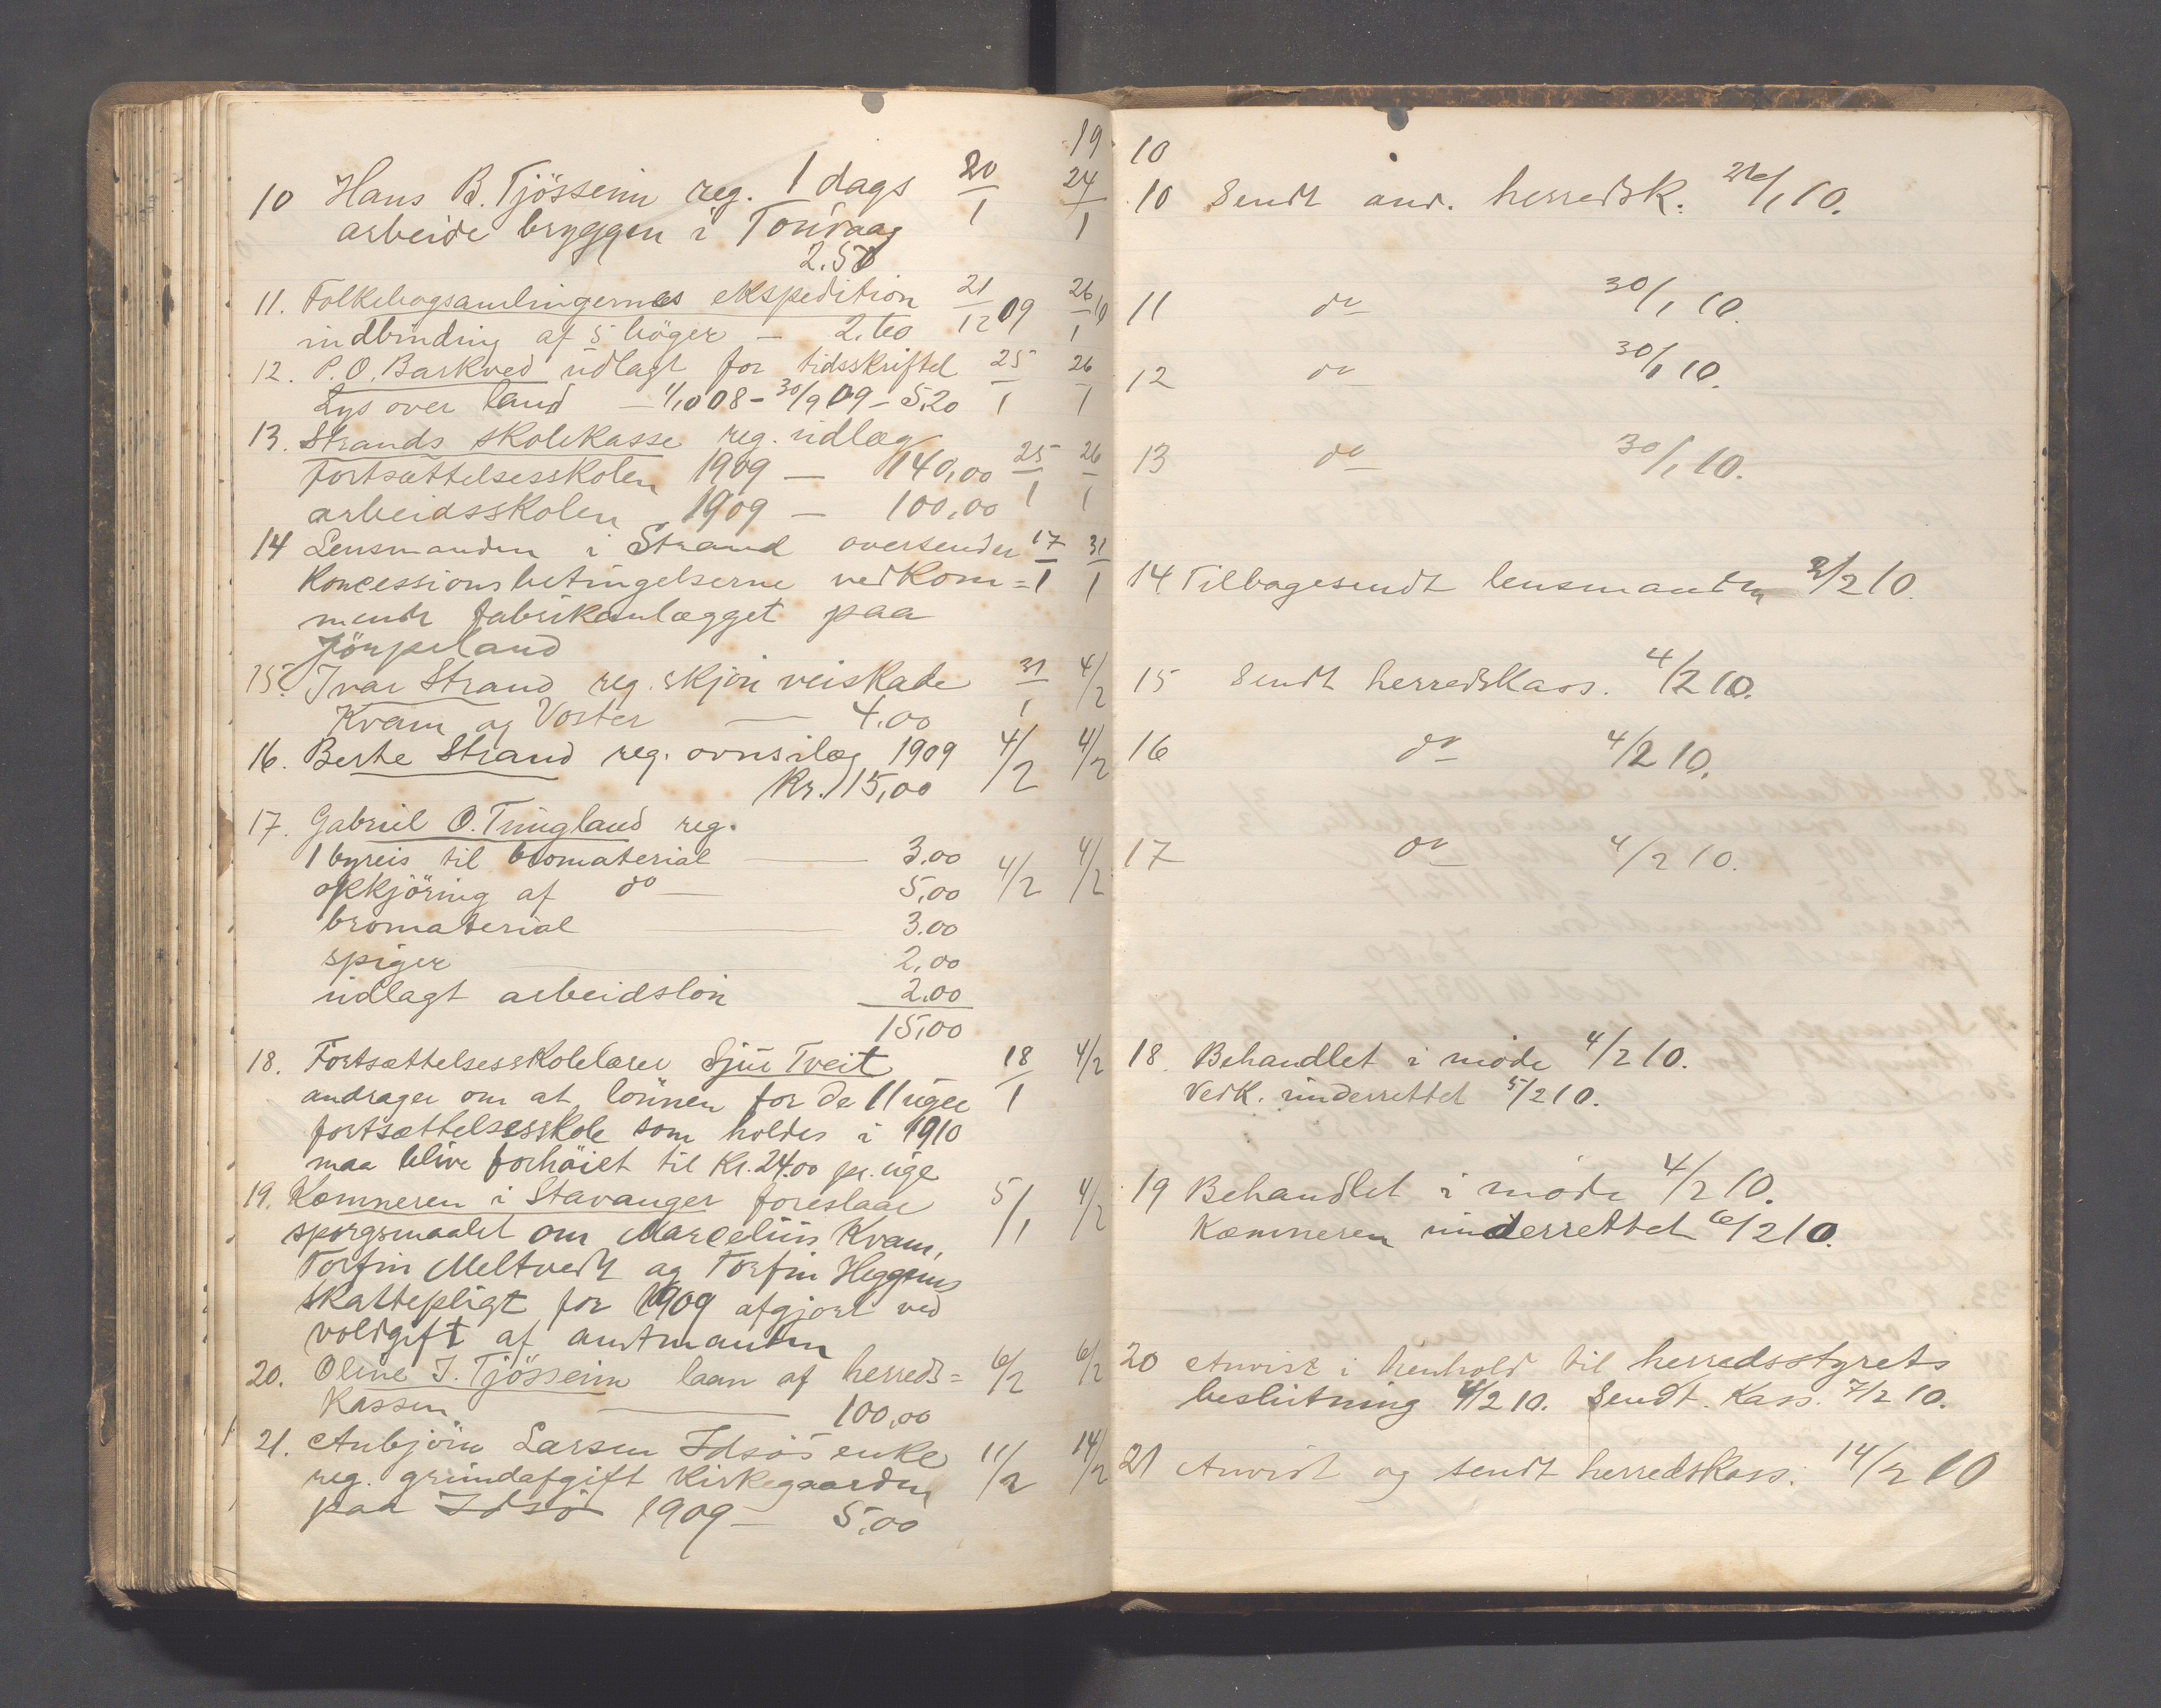 19
10 Hans B. Tjössem reg. 1 dags 20/1 24/1
arbeide bryggen i Tou
2.50
11. Folkebogsamlingernes ekspedition 21/12 09 26/1 10
indbinding af 5 böger — 2.60
12. P. O. Barkved udlagt for tidsskriftet 25/1 26/1
Lys over land — 1/10 08 - 30/9 09 - 5.20
13. Strands skolekasse reg. udlæg
fortsættelsesskolen 1909 — 140,00 25/1 26/1
arbeidsskolen 1909 — 100,00
14 Lensmanden i Strand oversender 17/1 31/1
Koncessionsbetingelserne vedkom=
mende fabrikanlægget paa
Jörpeland
15. Ivar Strand reg. skjön veiskade 31/1 4/2
Kvam og Voster — 4.00
16. Berte Strand reg. ovnsilæg 1909 4/2 4/2
Kr. 15,00
17. Gabriel O. Tungland reg.
1 byreis til bromaterial — 3.00 4/2 4/2
opkjöring af do — 5,00
bromaterial — 3.00
spiger — 2,00
udlagt arbeidslön 2.00
15,00
18. Fortsættelsesskolelærer Sjur Tveit 18/1 4/2
andrager om at lönnen for de 11 uger
fortsættelsesskole som holdes i 1910
maa blive forhöiet til Kr. 24.00 pr. uge
19. Kæmneren i Stavanger foreslaar 5/1 4/2
spörgsmaalet om Marcelius Kvam,
Torfin Meltvedt og Torfin Heggems
skattepligt for 1909 afgjort ved
voldgift af amtmanden
20. Oline J. Tjössem laan af herreds= 6/2 6/2
kassen — 100,00
21. Anbjörn Larsen Idsös enke 11/2 14/2
reg. grundafgift Kirkegaarden
paa Idsö 1909 — 5,00
10
10 Sendt anv. herredsk. 26/1 10.
11 do 30/1 10.
12 do 30/1 10.
13 do 30/1 10.
14 Tilbagesendt lensmanden 2/2 10.
15 Sendt herredskass. 4/2 10.
16 do 4/2 10.
17 do 4/2 10.
18. Behandlet i möde 4/2 10.
Vedk. underrettet 5/2 10.
19 Behandlet i möde 4/2 10.
Kæmneren underrettet 6/2 10.
20 Anvist i henhold til herredsstyrets
beslutning 4/2 10. Sendt. Kass. 7/2 10.
21 Anvist og sendt herredskass. 14/2 10